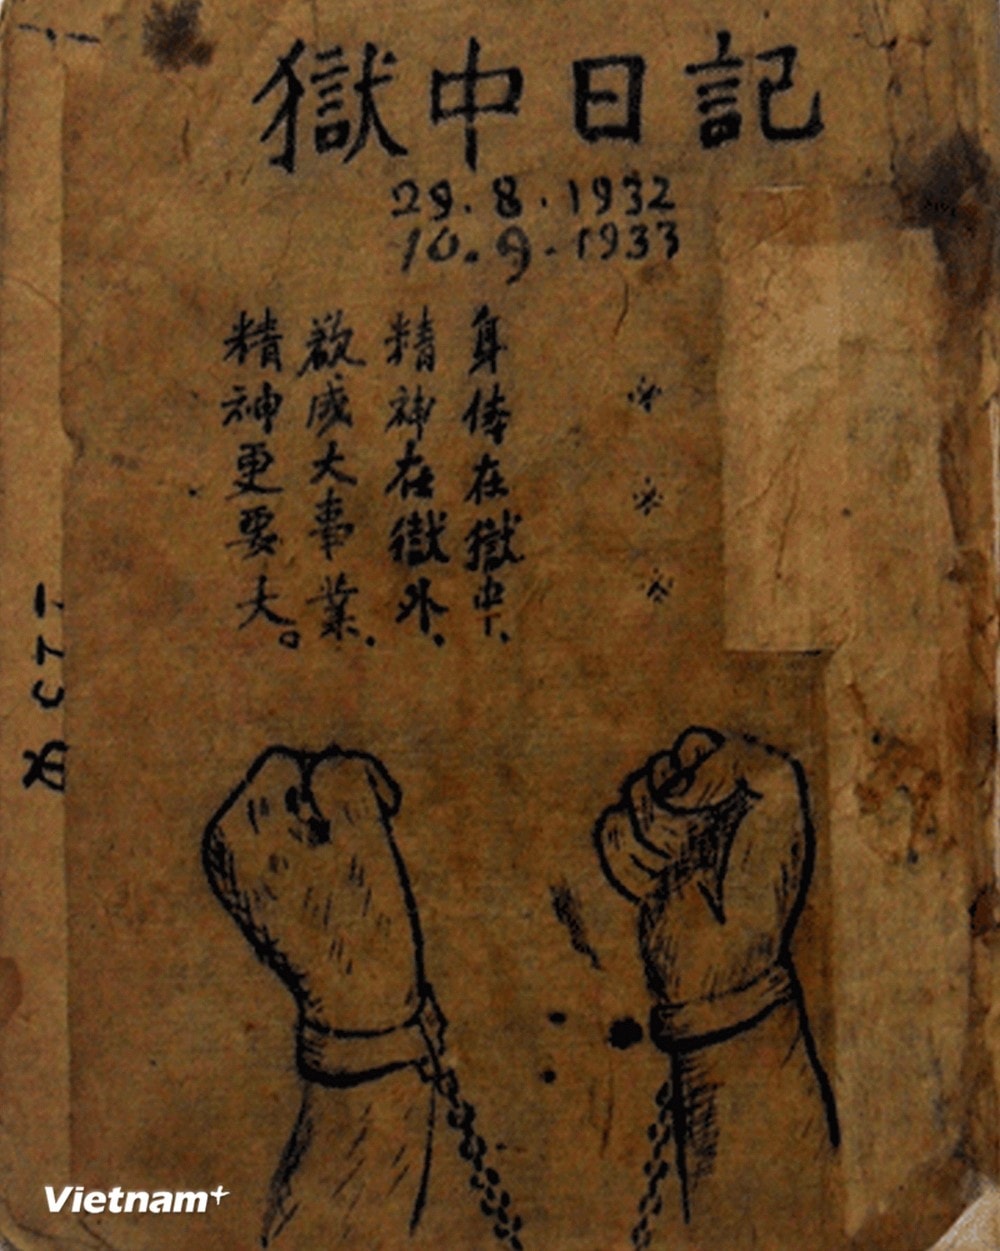 獄中日記
29.8.1932
10.9.1933
身体在獄中、
精神在獄外、
欲成大事業、
精神更要大。
Vietnam+